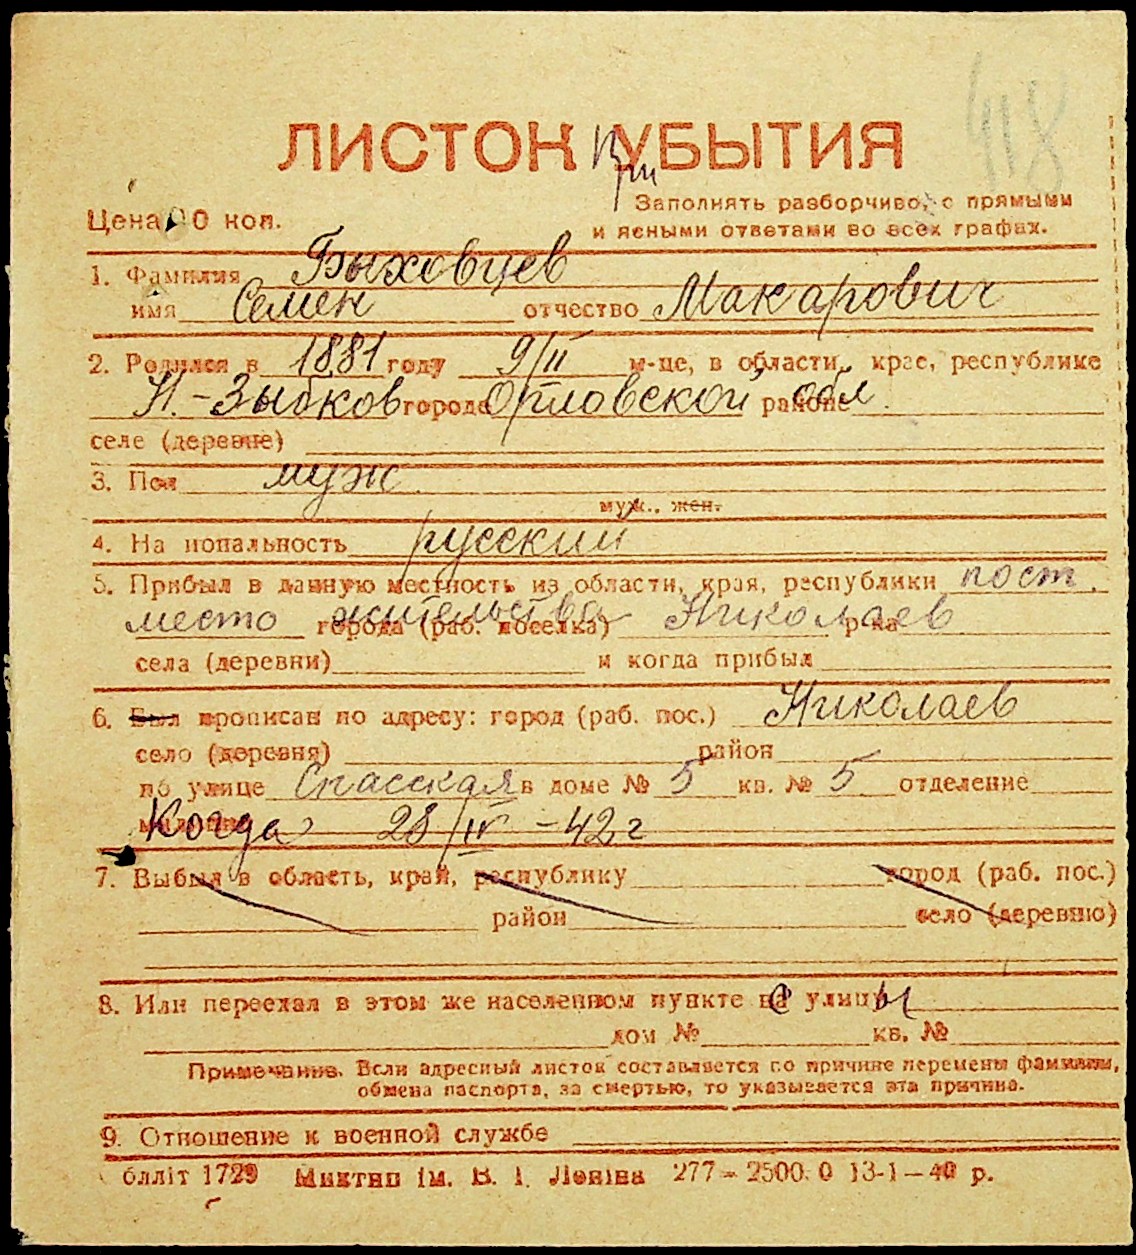 418
ЛИСТОК УБЫТИЯ
Цена 20 коп.
Заполнять разборчиво, с прямыми
и ясными ответами во всех графах.
1. Фамилия Быховцев
имя Семен отчество Макарович
2. Родился в 1881 году 9/II м-це, в области, крае, республике
Н.-Зыбков городе Орловской районе обл.
селе (деревне)
3. Пол муж
муж., жен.
4. На иопальность русский
5. Прибыл в данную местность из области, края, республики пост.
место жительства города (раб. поселка) Николаев р-на
села (деревни) и когда прибыл
6. Был прописан по адресу: город (раб. пос.) Николаев
село (деревня) район
по улице Спасская в доме № 5 кв. № 5 отделение
Когда 28/IV - 42 г
7. Выбыл в область, край, республику город (раб. пос.)
район село (деревню)
8. Или переехал в этом же населенном пункте с улицы
дом № кв. №
Примечание. Если адресный листок составляется по причине перемены фамилии,
обмена паспорта, за смертью, то указывается эта причина.
9. Отношение к военной службе
блліт 1729 Миктип ім. В. І. Леніна 277 - 2500.0 13-1-40 р.